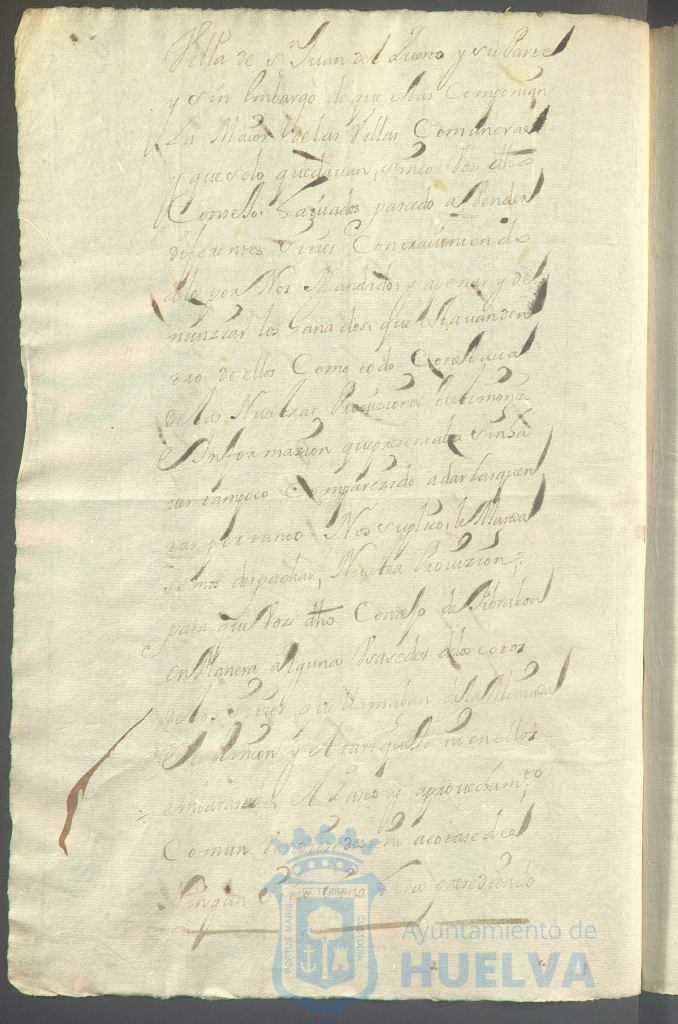 Villa de sn Juan del Puerto y su Parte
y sin Embargo de que estas Componian
La Maior de las Villas Comuneras
y que solo quedavan, sinco Voz dho
Consejo. haviades pasado a Vender
diferentes Sitios Contraviniendo
a lo por Nos Mandado, y apenar y de
nunziar los Ganados, que estavan den
tro de ellos Como todo Constava
de las Nuestras Provisiones testimonio
e Informazion que presentaba sin ha
ver tampoco Comparezido a dar las quen
tas por tanto Nos suplico, le Manda
semos despachar, Nuestra Provizion,
para que Voz dho Consejo de Gibraleon
en Manera alguna Vsasedes de los cotos
de los Sitios que llamaban de la
El Rincon y el ni en ellos
embarasedes El Pasto y aprovechamto
Comun ni acotasedes
Ningun Sitio presediendo
PORTUS MARIS ET TERRAE CUSTODIA
Ayuntamiento de
HUELVA